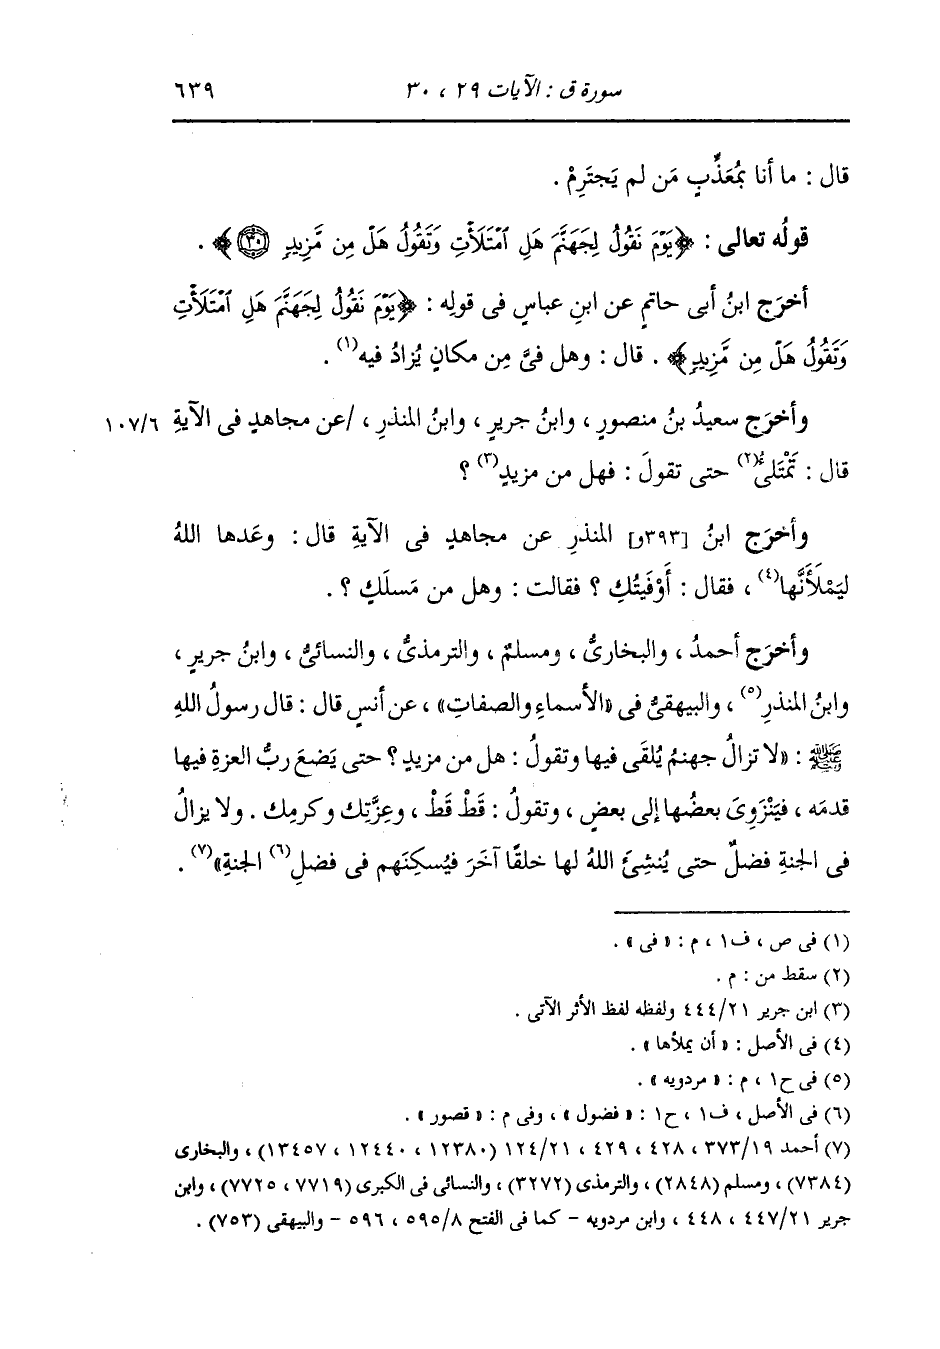 سورة ق : الآيات ٢٩ ، ٣٠ ٦٣٩
قال : ما أنا بمُعَذِّبٍ مَن لم يَجترِمْ .
قولُه تعالى : ﴿يَوْمَ نَقُولُ لِجَهَنَّمَ هَلِ ٱمْتَلَأْتِ وَتَقُولُ هَلْ مِن مَّزِيدٍ ٣٠﴾ .
أخرَج ابنُ أبى حاتمٍ عن ابنِ عباسٍ فى قولِه : ﴿يَوْمَ نَقُولُ لِجَهَنَّمَ هَلِ ٱمْتَلَأْتِ
وَتَقُولُ هَلْ مِن مَّزِيدٍ﴾ . قال : وهل فىَّ مِن مكانٍ يُزادُ فيه(١) .
وأخرَج سعيدُ بنُ منصورٍ ، وابنُ جريرٍ ، وابنُ المنذرِ ، /عن مجاهدٍ فى الآيةِ ١٠٧/٦
قال : تَمْتَلئُ(٢) حتى تقولَ : فهل من مزيدٍ(٣) ؟
وأخرَج ابنُ [٣٩٣و] المنذرِ عن مجاهدٍ فى الآيةِ قال : وعَدها اللهُ
ليَمْلَأَنَّها(٤) ، فقال : أَوْفَيتُكِ ؟ فقالت : وهل من مَسلَكٍ ؟ .
وأخرَج أحمدُ ، والبخارىُّ ، ومسلمٌ ، والترمذىُّ ، والنسائىُّ ، وابنُ جريرٍ ،
وابنُ المنذرِ(٥) ، والبيهقىُّ فى «الأسماءِ والصفاتِ» ، عن أنسٍ قال : قال رسولُ اللهِ
ﷺ : «لا تزالُ جهنمُ يُلقَى فيها وتقولُ : هل من مزيدٍ ؟ حتى يَضعَ ربُّ العزةِ فيها
قدمَه ، فيَنْزَوِىَ بعضُها إلى بعضٍ ، وتقولُ : قَطْ قَطْ ، وعِزَّتِك وكرمِك . ولا يزالُ
فى الجنةِ فضلٌ حتى يُنشِئَ اللهُ لها خلقًا آخَرَ فيُسكِنَهم فى فضلِ(٦) الجنةِ»(٧) .
(١) فى ص ، ف١ ، م : « فى » .
(٢) سقط من : م .
(٣) ابن جرير ٤٤٤/٢١ ولفظه لفظ الأثر الآتى .
(٤) فى الأصل : « أن يملأها » .
(٥) فى ح١ ، م : « مردويه » .
(٦) فى الأصل ، ف١ ، ح١ : « فضول » ، وفى م : « قصور » .
(٧) أحمد ٣٧٣/١٩ ، ٤٢٨ ، ٤٢٩ ، ١٢٤/٢١ (١٢٣٨٠ ، ١٢٤٤٠ ، ١٣٤٥٧) ، والبخارى
(٧٣٨٤) ، ومسلم (٢٨٤٨) ، والترمذى (٣٢٧٢) ، والنسائى فى الكبرى (٧٧١٩ ، ٧٧٢٥) ، وابن
جرير ٤٤٧/٢١ ، ٤٤٨ ، وابن مردويه – كما فى الفتح ٥٩٥/٨ ، ٥٩٦ – والبيهقى (٧٥٣) .